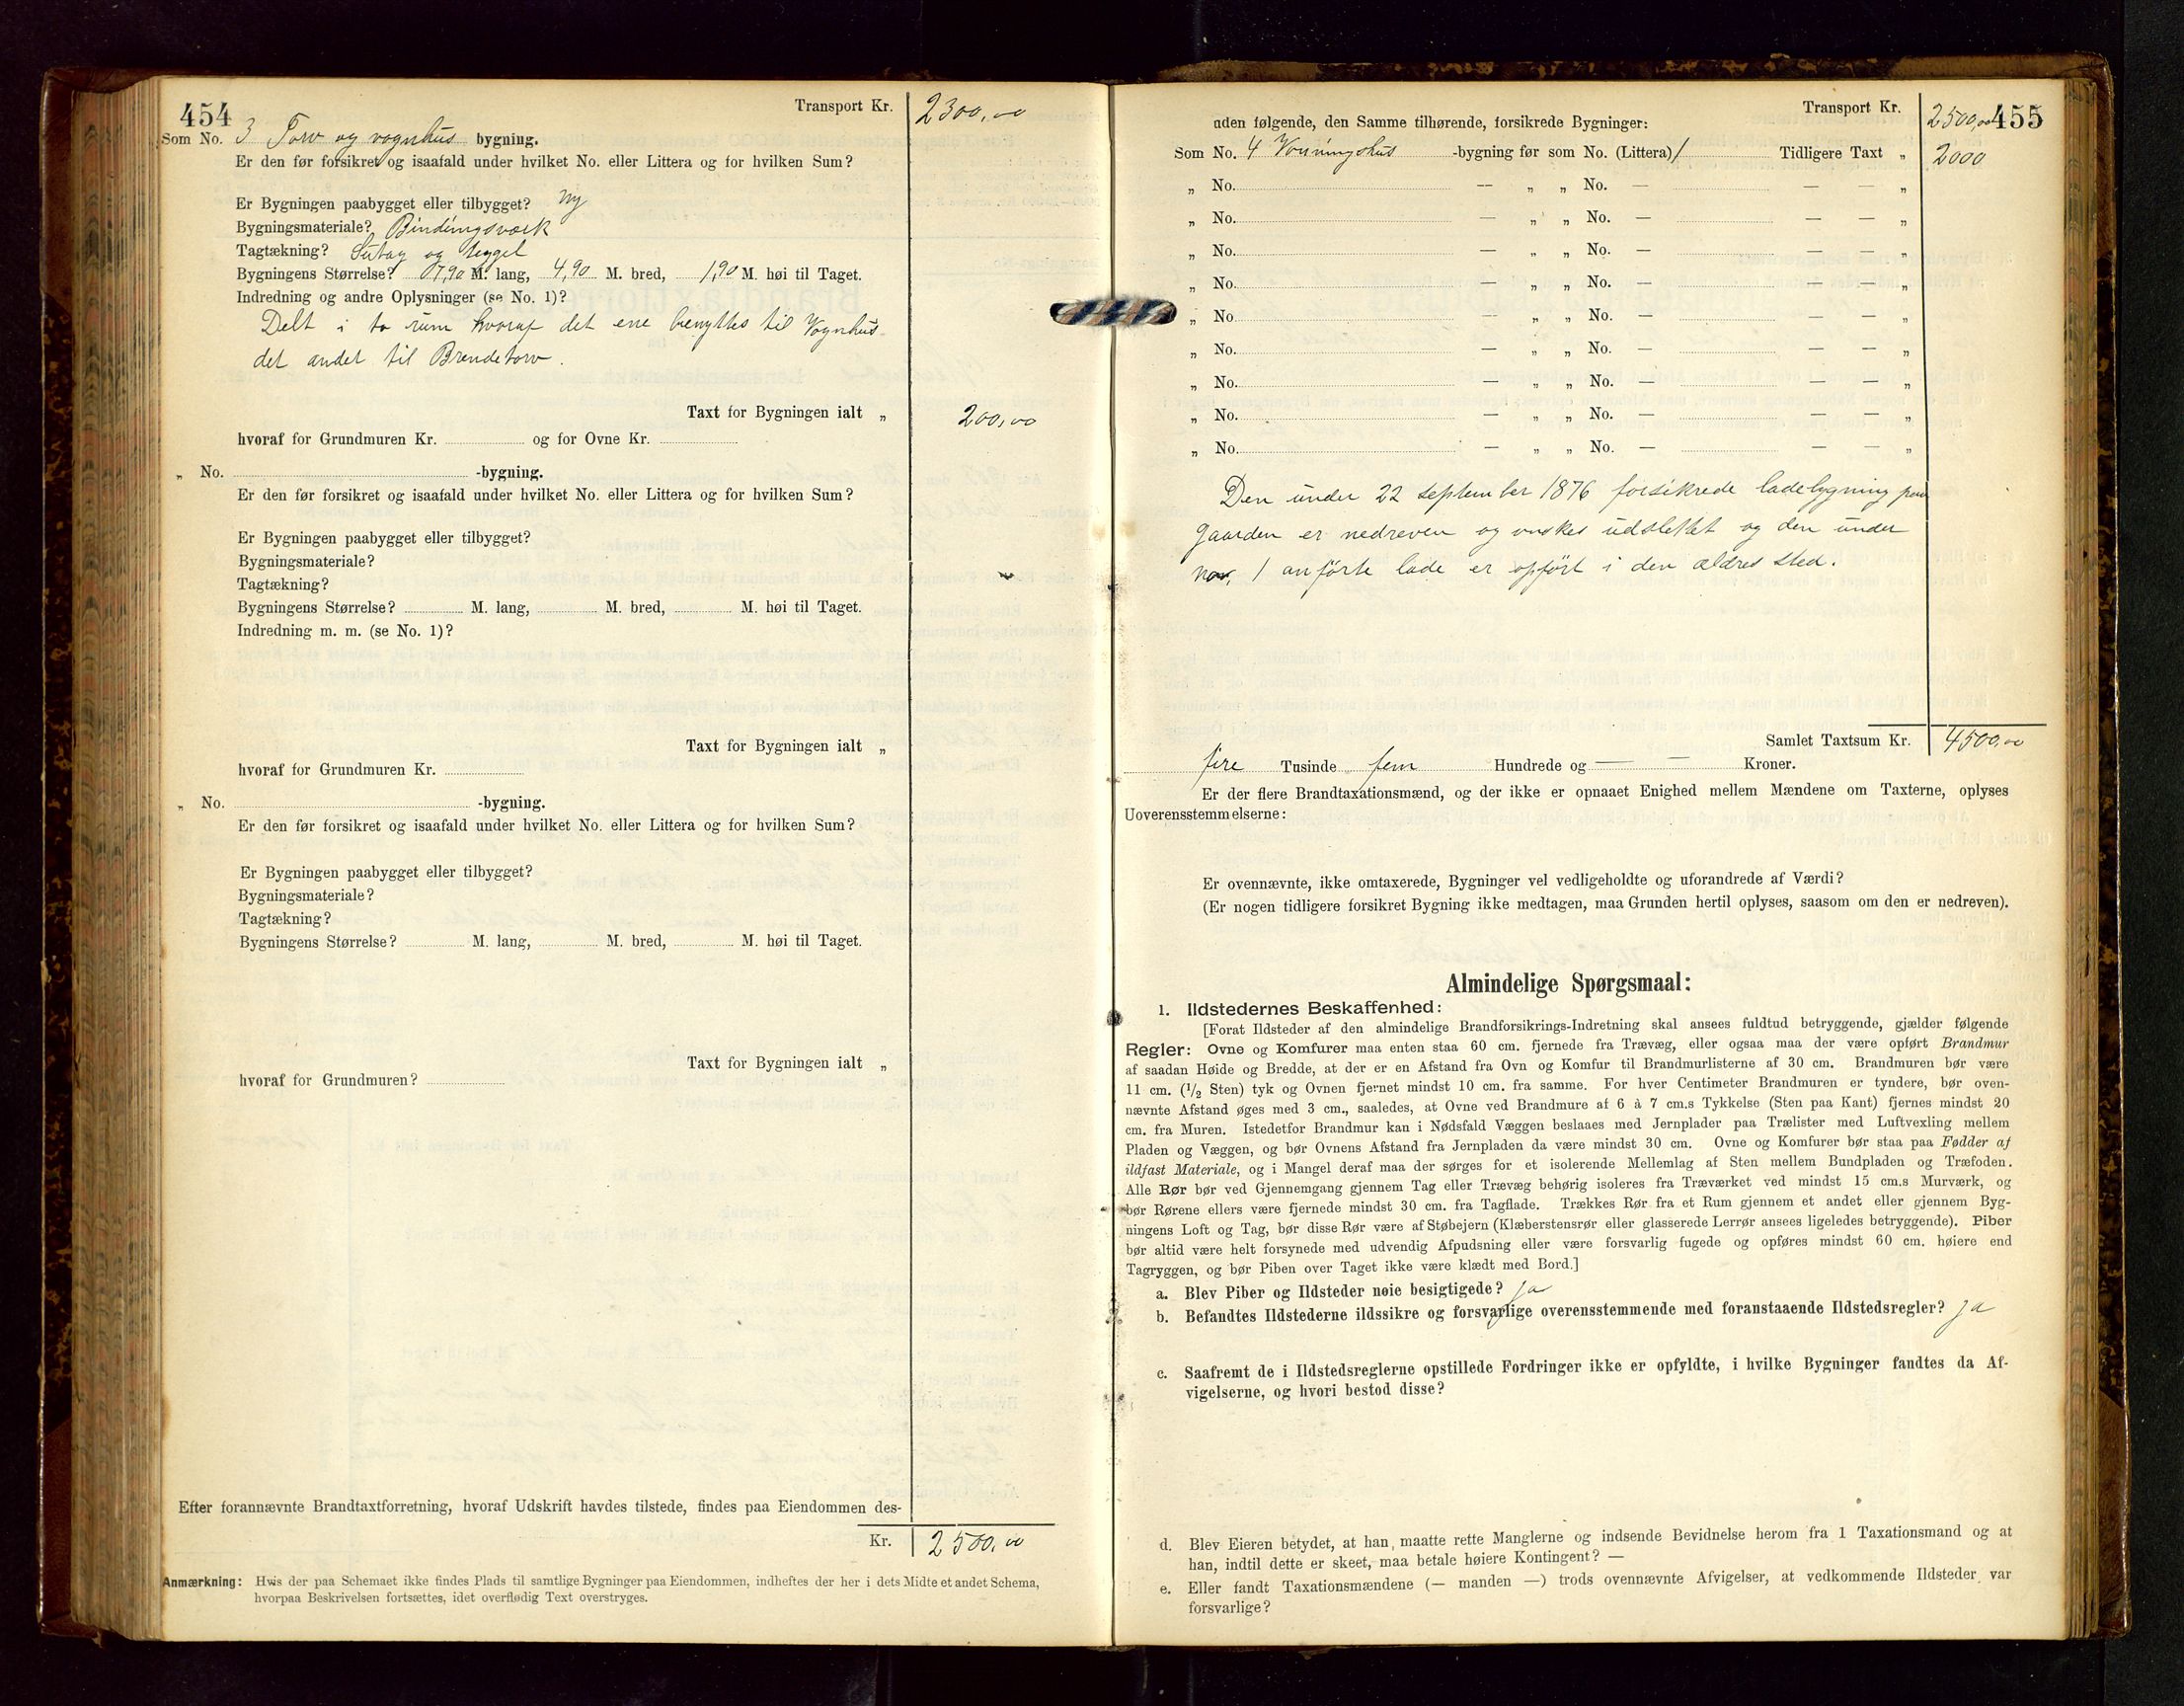 454
Transport Kr. 2300,00
Som No. 3 Torv og vognhus bygning.
Er den før forsikret og isaafald under hvilket No. eller Littera og for hvilken Sum?
Er Bygningen paabygget eller tilbygget? Ny
Bygningsmateriale? Bindingsværk
Tagtækning? Sutag og teggel
Bygningens Størrelse? 7,90 M. lang, 4,90 M. bred, 1,90 M. høi til Taget.
Indredning og andre Oplysninger (se No. 1)?
Delt i to rum hvoraf det ene benyttes til Vognhus
det andet til Brendetorv.
Taxt for Bygningen ialt „ 200,00
hvoraf for Grundmuren Kr. og for Ovne Kr.
„ No. -bygning.
Er den før forsikret og isaafald under hvilket No. eller Littera og for hvilken Sum?
Er Bygningen paabygget eller tilbygget?
Bygningsmateriale?
Tagtækning?
Bygningens Størrelse? M. lang, M. bred, M. høi til Taget.
Indredning m. m. (se No. 1)?
Taxt for Bygningen ialt „
hvoraf for Grundmuren Kr.
„ No. -bygning.
Er den før forsikret og isaafald under hvilket No. eller Littera og for hvilken Sum?
Er Bygningen paabygget eller tilbygget?
Bygningsmateriale?
Tagtækning?
Bygningens Størrelse? M. lang, M. bred, M. høi til Taget.
Taxt for Bygningen ialt „
hvoraf for Grundmuren?
Efter forannævnte Brandtaxtforretning, hvoraf Udskrift havdes tilstede, findes paa Eiendommen des-
Kr. 2500,00
Anmærkning: Hvis der paa Schemaet ikke findes Plads til samtlige Bygninger paa Eiendommen, indheftes der her i dets Midte et andet Schema,
hvorpaa Beskrivelsen fortsættes, idet overflødig Text overstryges.
Transport Kr. 2500,00 455
uden følgende, den Samme tilhørende, forsikrede Bygninger:
Som No. 4 Vouningshus -bygning før som No. (Littera) 1 Tidligere Taxt „ 2000
„ No. — „ „ No. — — — „
„ No. — „ „ No. — — — „
„ No. — „ „ No. — — — „
„ No. — „ „ No. — — — „
„ No. — „ „ No. — — — „
„ No. — „ „ No. — — — „
„ No. — „ „ No. — — — „
„ No. — „ „ No. — — — „
„ No. — „ „ No. — — — „
Den under 22 september 1876 forsikrede ladebygning paa
gaarden er nedreven og onskes udslettet og den under
1 anførte lade er opført i den ældres sted.
Samlet Taxtsum Kr. 4500,00
fire Tusinde fem Hundrede og — — Kroner.
Er der flere Brandtaxationsmænd, og der ikke er opnaaet Enighed mellem Mændene om Taxterne, oplyses
Uoverensstemmelserne:
Er ovennævnte, ikke omtaxerede, Bygninger vel vedligeholdte og uforandrede af Værdi?
(Er nogen tidligere forsikret Bygning ikke medtagen, maa Grunden hertil oplyses, saasom om den er nedreven).
Almindelige Spørgsmaal:
1. Ildstedernes Beskaffenhed:
[Forat Ildsteder af den almindelige Brandforsikrings-Indretning skal ansees fuldtud betryggende, gjælder følgende
Regler: Ovne og Komfurer maa enten staa 60 cm. fjernede fra Trævæg, eller ogsaa maa der være opført Brandmur
af saadan Høide og Bredde, at der er en Afstand fra Ovn og Komfur til Brandmurlisterne af 30 cm. Brandmuren bør være
11 cm. (1/2 Sten) tyk og Ovnen fjernet mindst 10 cm. fra samme. For hver Centimeter Brandmuren er tyndere, bør oven-
nævnte Afstand øges med 3 cm., saaledes, at Ovne ved Brandmure af 6 à 7 cm.s Tykkelse (Sten paa Kant) fjernes mindst 20
cm. fra Muren. Istedetfor Brandmur kan i Nødsfald Væggen beslaaes med Jernplader paa Trælister med Luftvexling mellem
Pladen og Væggen, og bør Ovnens Afstand fra Jernpladen da være mindst 30 cm. Ovne og Komfurer bør staa paa Fødder af
ildfast Materiale, og i Mangel deraf maa der sørges for et isolerende Mellemlag af Sten mellem Bundpladen og Træfoden.
Alle Rør bør ved Gjennemgang gjennem Tag eller Trævæg behørig isoleres fra Træværket ved mindst 15 cm.s Murværk, og
bør Rørene ellers være fjernede mindst 30 cm. fra Tagflade. Trækkes Rør fra et Rum gjennem et andet eller gjennem Byg-
ningens Loft og Tag, bør disse Rør være af Støbejern (Klæberstensrør eller glasserede Lerrør ansees ligeledes betryggende). Piber
bør altid være helt forsynede med udvendig Afpudsning eller være forsvarlig fugede og opføres mindst 60 cm. høiere end
Tagryggen, og bør Piben over Taget ikke være klædt med Bord.]
a. Blev Piber og Ildsteder nøie besigtigede? ja
b. Befandtes Ildstederne ildssikre og forsvarlige overensstemmende med foranstaaende Ildstedsregler? ja
c. Saafremt de i Ildstedsreglerne opstillede Fordringer ikke er opfyldte, i hvilke Bygninger fandtes da Af-
vigelserne, og hvori bestod disse?
d. Blev Eieren betydet, at han maatte rette Manglerne og indsende Bevidnelse herom fra 1 Taxationsmand og at
han, indtil dette er skeet, maa betale høiere Kontingent? —
e. Eller fandt Taxationsmændene (— manden —) trods ovennævnte Afvigelser, at vedkommende Ildsteder var
forsvarlige?